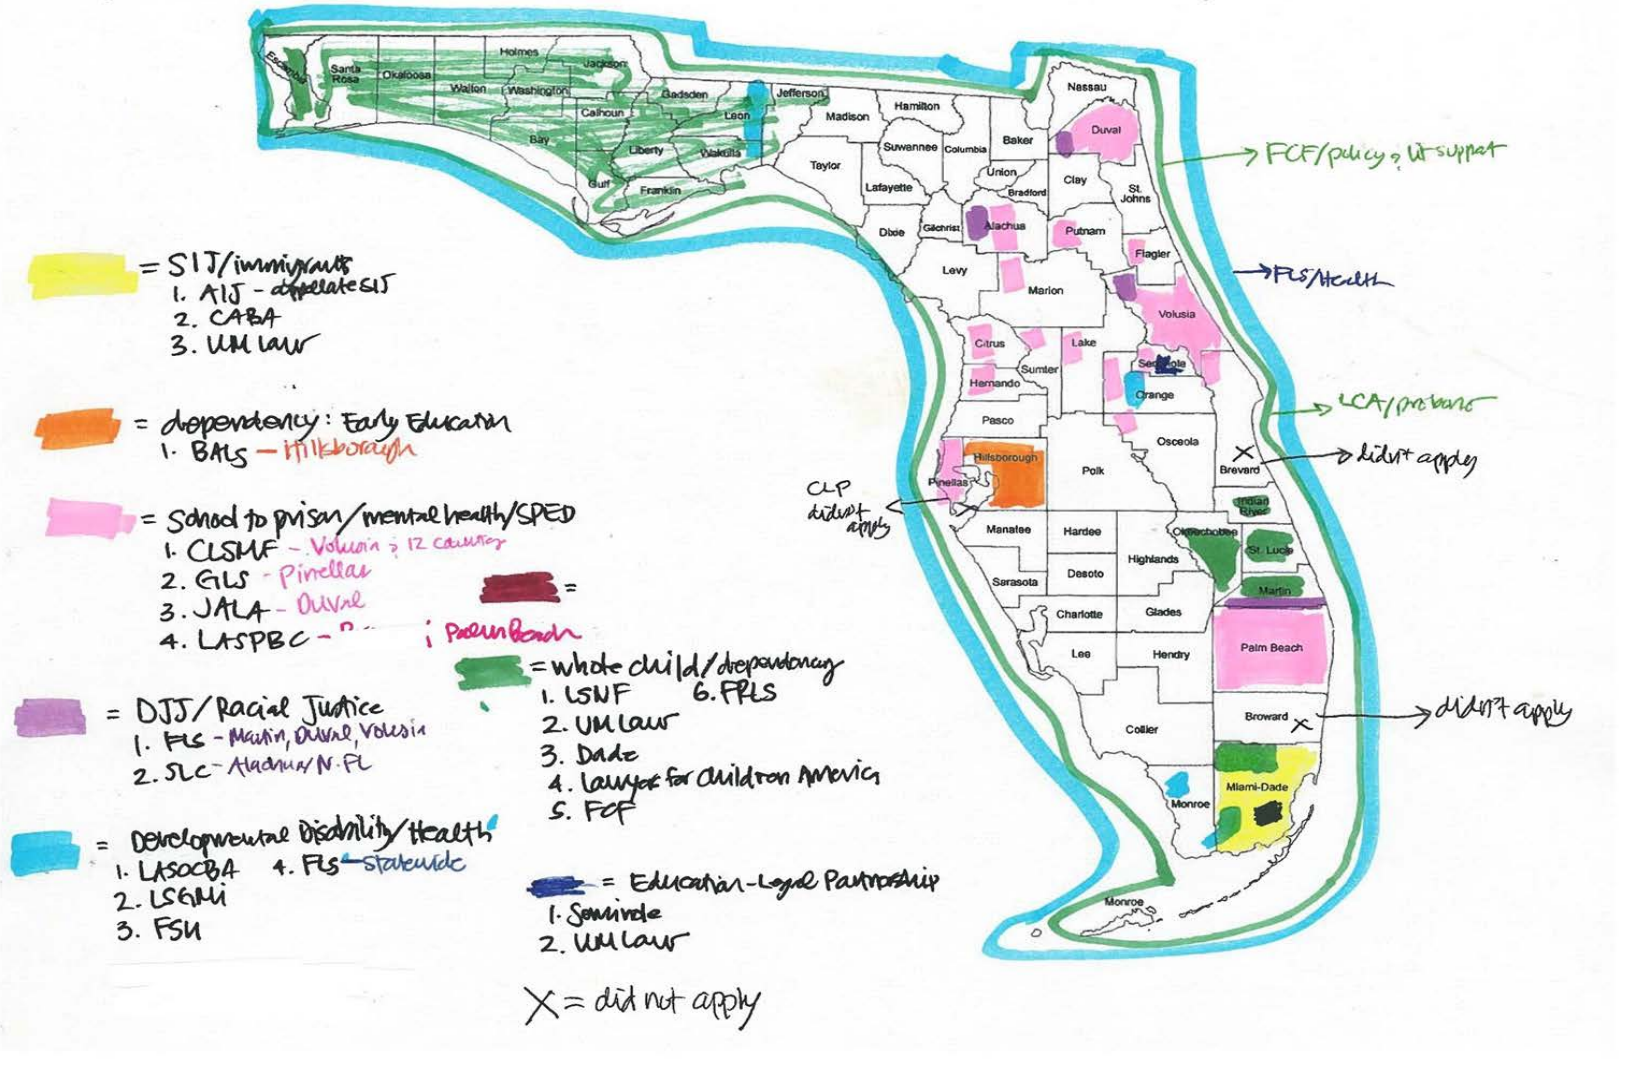 Holmes
Escambia
Santa
Rosa
Okaloosa
Walton
Washington
Jackson
Bay
Calhoun
Gulf
Liberty
Franklin
Gadsden
Leon
Wakulla
Jefferson
Madison
Taylor
Hamilton
Suwannee
Columbia
Lafayette
Dixie
Gilchrist
Baker
Union
Bradford
Nassau
Duval
Clay
St.
Johns
Alachua
Putnam
Flagler
Levy
Marion
Volusia
Citrus
Sumter
Lake
Seminole
Hernando
Orange
Pasco
Osceola
Brevard
Hillsborough
Pinellas
Polk
Indian
River
Manatee
Hardee
Highlands
Okeechobee
St. Lucie
Sarasota
Desoto
Martin
Charlotte
Glades
Lee
Hendry
Palm Beach
Collier
Broward
Monroe
Miami-Dade
Monroe
FCF/policy & lit support
FLS/Health
LCA/probono
X
didn't apply
CLP
didn't
apply
X
X
didn't apply
= SIJ/immigrants
1. AIJ - appellate SIJ
2. CABA
3. UM Law
= dependency: Early Education
1. BALS - Hillsborough
= School to prison/mental health/SPED
1. CLSMF - Volusia & 12 counties
2. GLS - Pinellas
3. JALA - Duval
4. LASPBC - ; Palm Beach
=
= DJJ/Racial Justice
1. FLS - Martin, Duval, Volusia
2. SLC - Alachua/N. FL
= whole child/dependency
1. LSNF 6. FRLS
2. UM Law
3. Dade
4. Lawyers for Children America
5. FCF
= Developmental Disability/Health
1. LASOCBA 4. FLS - statewide
2. LSGMi
3. FSU
= Education-Legal Partnership
1. Seminole
2. UM Law
X = did not apply